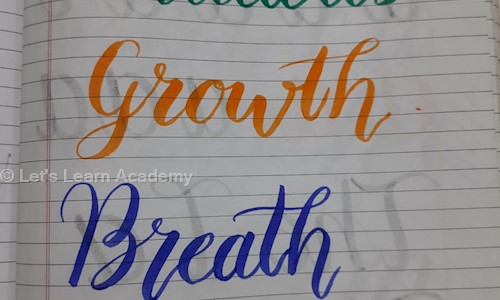 Growth
© Let's Learn Academy
Breath